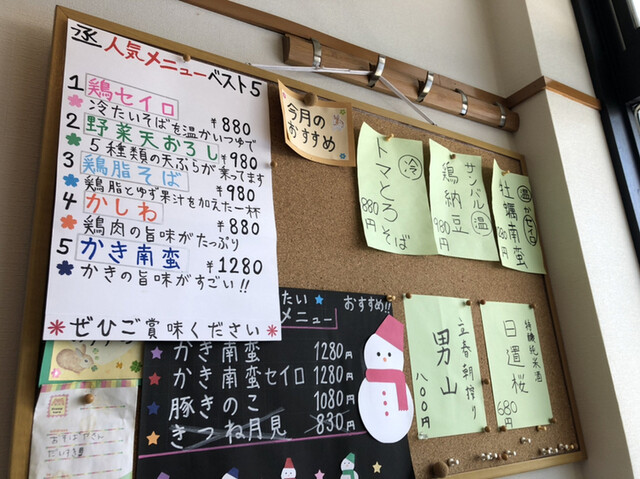 丞 人気メニューベスト5
1 鶏セイロ ¥880
冷たいそばを温かいつゆで
2 野菜天おろし ¥980
5種類の天ぷらが乗ってます
3 鶏脂そば ¥980
鶏脂とゆず果汁を加えた一杯
4 かしわ ¥880
鶏肉の旨味がたっぷり
5 かき南蛮 ¥1280
かきの旨味がすごい!!
＊ぜひご賞味ください＊
今月の
おすすめ
冷
トマとろそば
880円
サンバル
鶏納豆
温
980円
温
牡蠣南蛮
たい
おすすめ!!
メニュー
かき南蛮 1280円
かき南蛮セイロ 1280円
豚きのこ 1080円
きつね月見 830円
立春朝搾り
男山
八〇〇円
特別純米酒
日置桜
680円